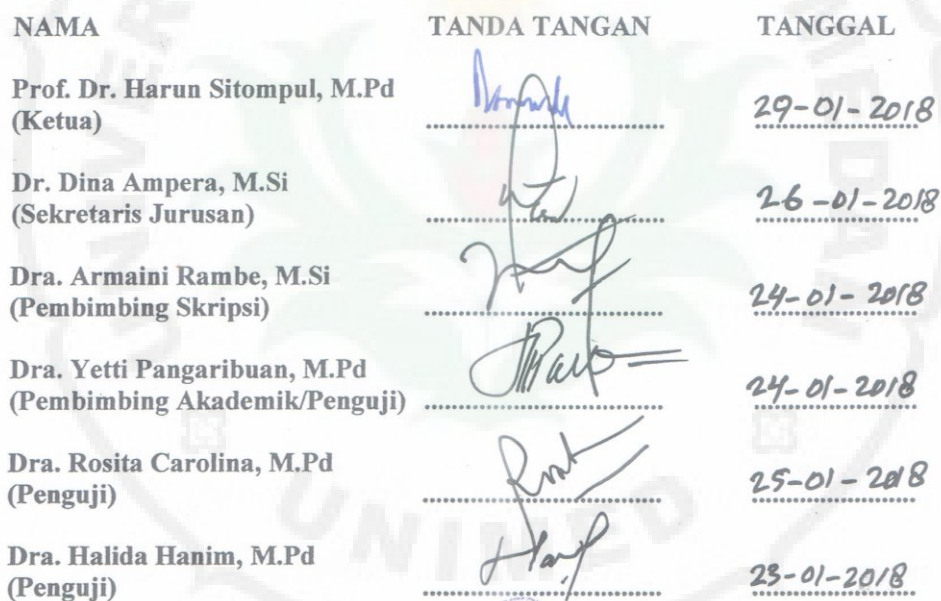 NAMA TANDA TANGAN TANGGAL
Prof. Dr. Harun Sitompul, M.Pd
(Ketua) 29-01-2018
Dr. Dina Ampera, M.Si
(Sekretaris Jurusan) 26-01-2018
Dra. Armaini Rambe, M.Si
(Pembimbing Skripsi) 24-01-2018
Dra. Yetti Pangaribuan, M.Pd
(Pembimbing Akademik/Penguji) 24-01-2018
Dra. Rosita Carolina, M.Pd
(Penguji) 25-01-2018
Dra. Halida Hanim, M.Pd
(Penguji) 23-01-2018
UNIMED